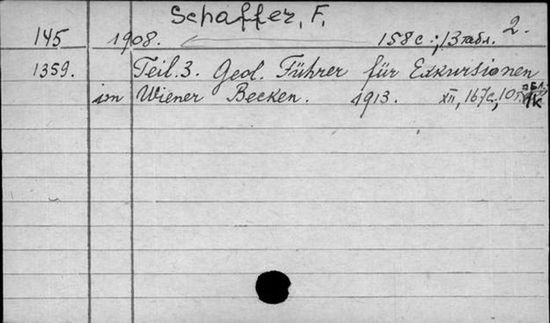 Schaffer, F.
2.
145 1908. 158 с.; 13 табл.
1359. Teil. 3. Geol. Führer für Exkursionen
im Wiener Becken. 1913. XII, 167 с., 10